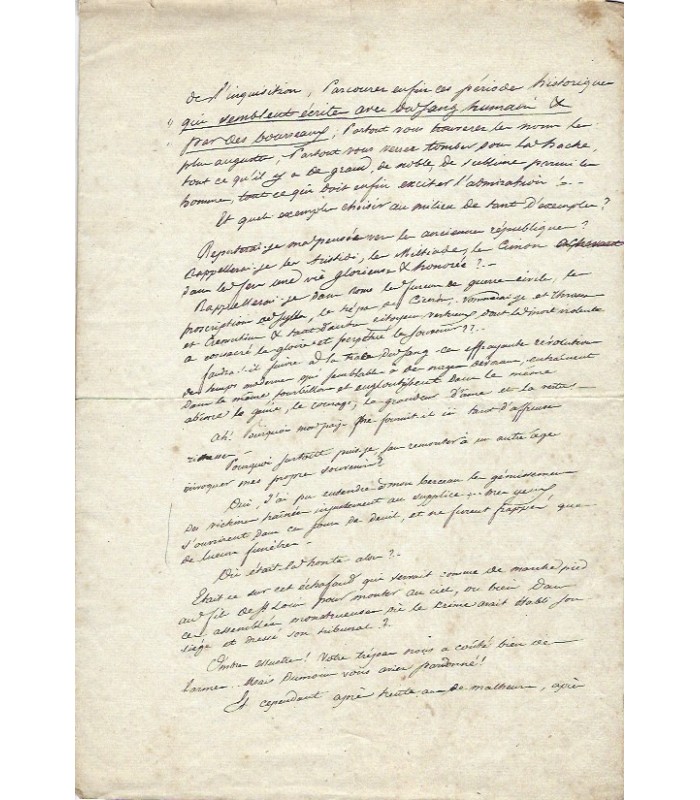 de l'inquisition, Parcourez enfin ces période historique
" qui semblent écrite avec du sang humain &
" par des bourreaux; Partout vous trouverez les noms les
plus auguste, Partout vous verrez tomber sous la hache,
tout ce qu'il y a de grand, de noble, de sublime parmi les
homme, tout ce qui doit enfin exciter l'admiration! ..
Et quels exemple choisir au milieu de tant d'exemple?
Reporterai-je ma pensée vers les ancienne république?
Rappellerai-je les Aristide, les Miltiade, les Cimon
dans les fers une vie glorieuse & honorée? -
Rappellerai-je dans Rome les fureurs de guerre civile, les
proscription de Sylla, le trépas de Cicéron, et Thraseas
et Cremutius & tant d'autre citoyens vertueux dont la mort violente
a consacré la gloire et perpétué le souvenir??..
faudra-t-il suivre à la trace du sang cette effroyable révolution
des temps moderne qui semblable à un nuage dévorant, entraînent
dans le même tourbillon et engloutissent dans le même
abîme le génie, le courage, la grandeur d'âme et la vertu -
Ah! Pourquoi mon pays fournit-il ici tant d'affreuse
richesse -
Pourquoi surtout puis-je, sans remonter à un autre âge
invoquer mes propre souvenirs?
Oui, j'ai pu entendre de mon berceau les gémissement
des victimes traînées injustement au supplice... mes yeux
s'ouvrirent dans ces jours de deuil, et ne furent frappés, que
de lueurs funèbre -
Où était la honte alors? -
Était-ce sur cet échafaud qui servait comme de marche pied
au fils de St Louis pour monter au ciel, ou bien dans
ces assemblées monstrueuse où le crime avait établi son
siège et dressé son tribunal?
Ombre auguste! Votre trépas nous a coûté bien de
larmes... Mais du moins vous aviez pardonné!
Et cependant après trente ans de malheurs, après